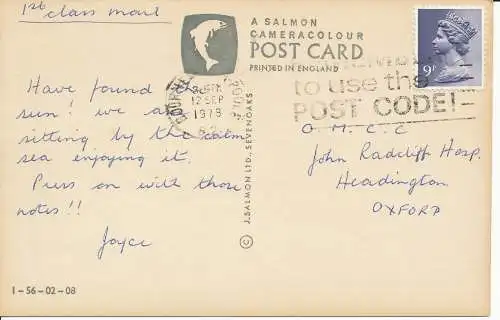 1st class mail
A SALMON
CAMERACOLOUR
POST CARD
PRINTED IN ENGLAND
Have found the
sun! we are
sitting by the calm
sea enjoying it.
Press on with those
notes!!
Joyce
1-56-02-08
© J. SALMON LTD., SEVENOAKS
12 SEP
1979
to use the
POST CODE!
9P
O.M.C.C
John Radcliff Hosp.
Headington
OXFORD